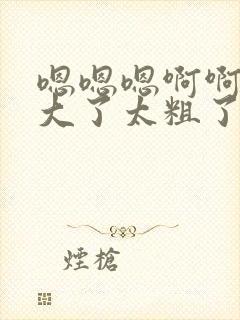 嗯嗯嗯啊啊
大了太粗了
煙槍